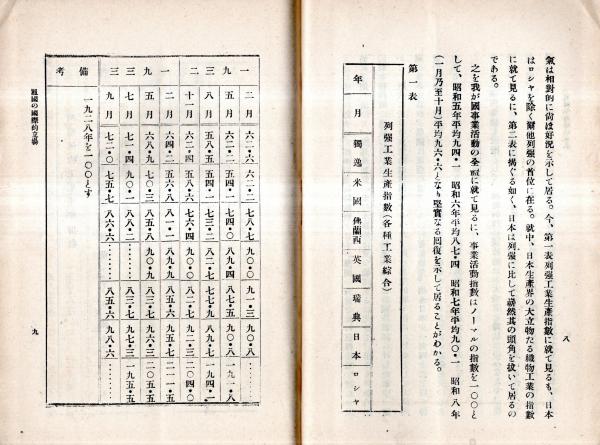 氣は相對的に尙ほ好況を示して居る。今、第一表列强工業生產指數に就て見るも、日本
はロシヤを除く爾他列强の首位に在る。就中、日本生產界の大立物たる織物工業の指數
に就て見るに、第二表に揭ぐる如く、日本は列强に比して嶄然其の頭角を拔いて居るの
である。
之を我が國事業活動の全面に就て見るに、事業活動指數はノーマルの指數を一〇〇と
して、昭和五年平均九四・一　昭和六年平均八七・四　昭和七年平均九〇・一　昭和八年
(一月乃至十月)平均九六・六となり堅實なる回復を示して居ることがわかる。
第一表
列强工業生產指數(各種工業綜合)
年　月　獨逸　米國　佛蘭西　英國　瑞典　日本　ロシヤ
八
一　二月　六二・六　六二・二　七八・七　九〇・〇　九一・三　九〇・八　……
九　五月　六二・二　五五・四　七四・〇　八七・五　九〇・八　一九一・八
三　八月　五八・五　五四・一　七三・二　七七・九　八九・七　一九四・一
二　十一月　六二・四　七六・四　九二・三　二〇四・〇
一　二月　六四・二　五六・八　八一・一　八九・九　八五・六　九五・七　二一一・五
九　五月　六八・九　七〇・三　八五・八　九〇・九　九六・三　二〇五・五
三　七月　七一・四　九〇・一　八八・二　……　八三・七　一九五・五
三　九月　七二・〇　七五・七　八六・六　……　八五・六　九八・六　……
備考　一九二八年を一〇〇とす
我國の國際的立場
九